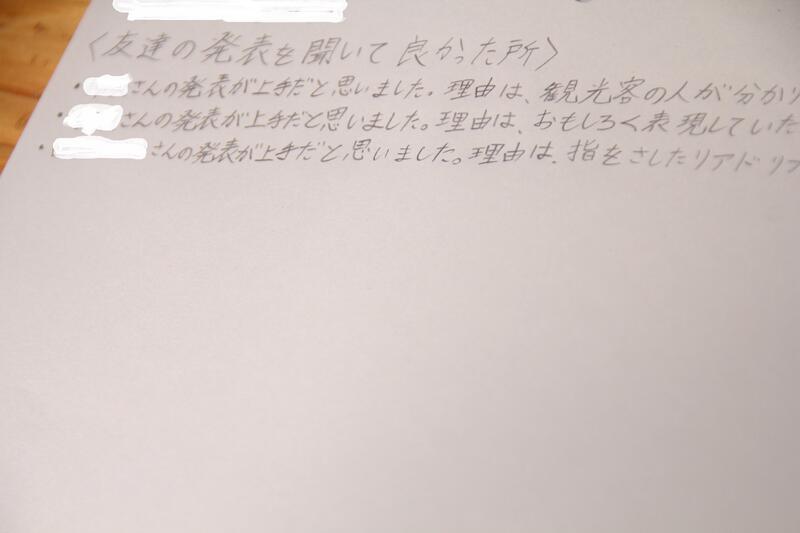 〈友達の発表を聞いて良かった所〉
・さんの発表が上手だと思いました。理由は、観光客の人が分かり
・さんの発表が上手だと思いました。理由は、おもしろく表現していた
・さんの発表が上手だと思いました。理由は、指をさしたりアドリブ